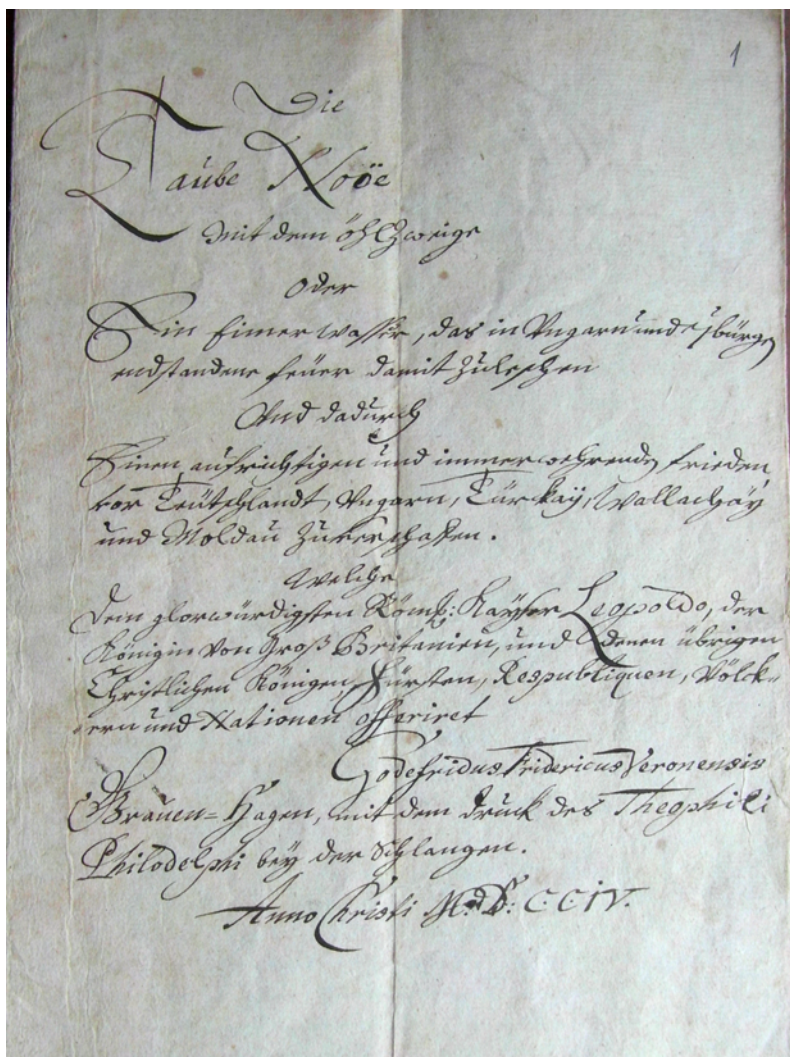 1
Die
Taube Noöe
Mit dem öhlzweige
Oder
Ein Eimer Wasser, das in Ungarn und
endstandene feüer damit Zuleschen
Und dadurch
Einen aufrichtigen und immerwehrenden frieden
vor Teütschlandt, Ungarn, Türkaÿ, Wallachäÿ
und Moldau Zuverschaffen.
Welche
Dem glorwürdigsten Römis: Kaÿser Leopoldo, der
Königin Von Groß Britanien, und denen übrigen
Christlichen Königen, Fürsten, Respubliquen, Völck=
ern und Nationen offeriret
Godefridus Fridericus Veronensis
Grauen= Hagen, mit dem Druck des Theophili
Philodelphi beÿ der Schlangen.
Anno Christi M:D: CCIV.